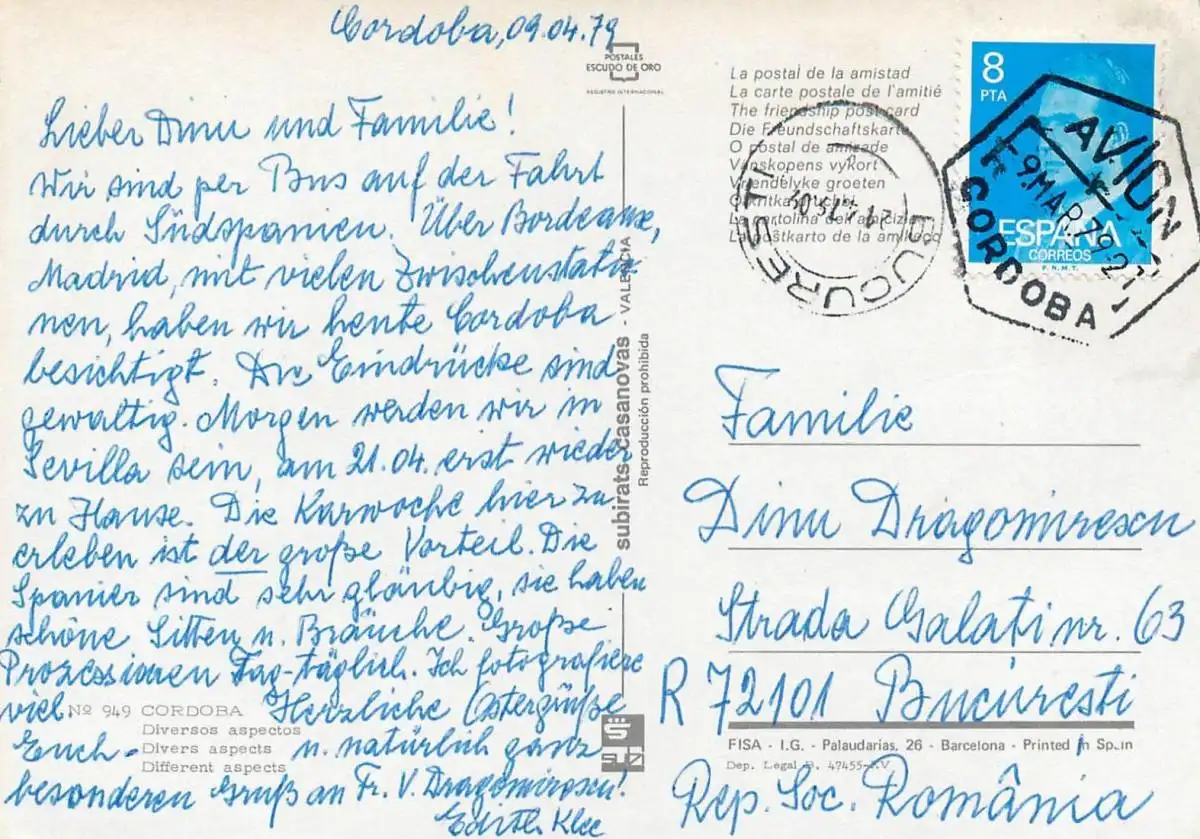 Cordoba, 09.04.79
POSTALES
ESCUDO DE ORO
REGISTRO INTERNACIONAL
Lieber Dinu und Familie!
Wir sind per Bus auf der Fahrt
durch Südspanien. Über Bordeaux,
Madrid, mit vielen Zwischenstatio-
nen, haben wir heute Cordoba
besichtigt. Die Eindrücke sind
gewaltig. Morgen werden wir in
Sevilla sein, am 21.04. erst wieder
zu Hause. Die Karwoche hier zu
erleben ist der große Vorteil. Die
Spanier sind sehr gläubig, sie haben
schöne Sitten u. Bräuche. Große
Prozessionen Tag-täglich. Ich fotografiere
viel. Herzliche Ostergrüße
Euch - u. natürlich ganz
besonderen Gruß an Fr. V. Dragomirescu!
Edith Klee
Nº 949 CORDOBA
Diversos aspectos
Divers aspects
Different aspects
subirats casanovas - VALENCIA
Reproducción prohibida
La postal de la amistad
La carte postale de l'amitié
The friendship post card
Die Freundschaftskarte
O postal de amizade
Vänskopens vykort
Vriendelyke groeten
La cartolina dell'amicizia
La postkarto de la amikeco
BUCUREȘTI
8
PTA
ESPAÑA
CORREOS
F.N.M.T.
AVION
9 MAR. 79
CORDOBA
Familie
Dinu Dragomirescu
Strada Galati nr. 63
R 72101 Bucuresti
FISA - I.G. - Palaudarias, 26 - Barcelona - Printed in Spain
Dep. Legal B. 47455-XV
Rep. Soc. România